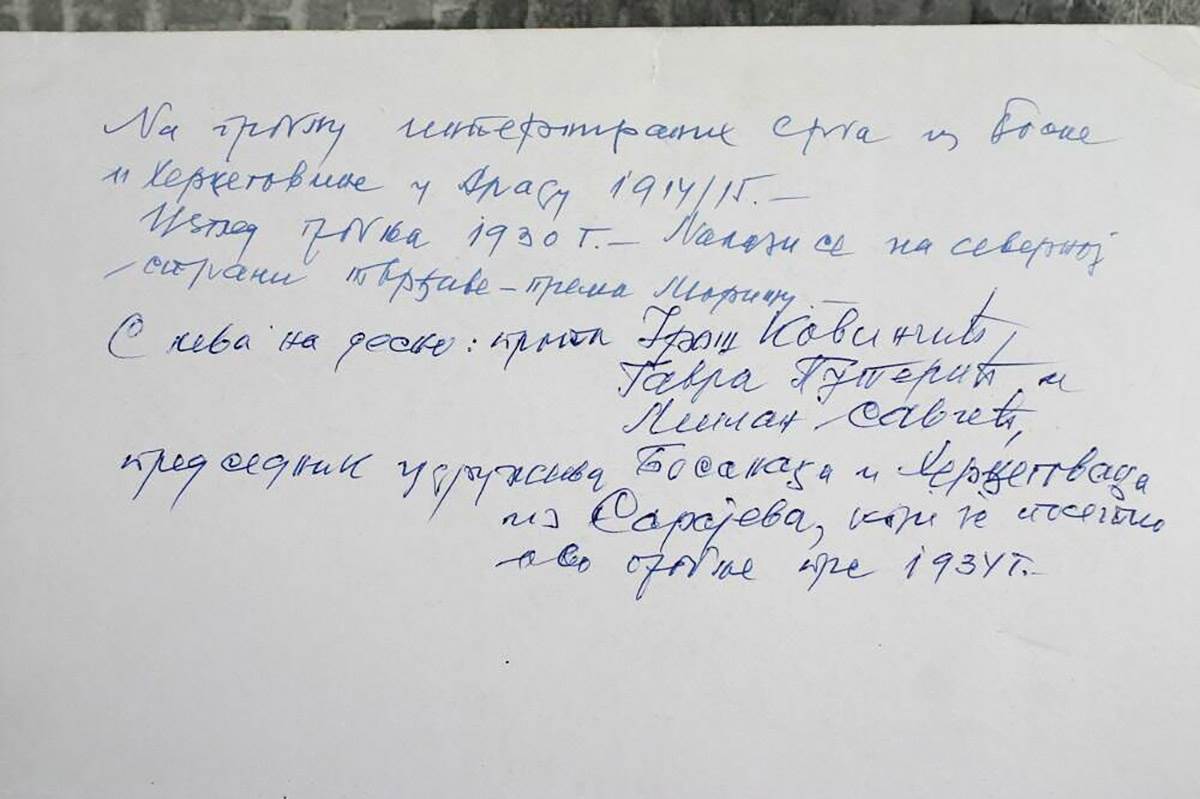 На гробљу интернираних Срба из Босне
и Херцеговине у Араду 1914/15. –
Изглед гробља 1930 г. – Налази се на северној
страни тврђаве – према Моришу. –
С лева на десно: прота Урош Ковинчић,
Гавра Путерић и
Милан Савчић,
председник удружења Босанаца и Херцеговаца
из Сарајева, који је посетио
ово гробље пре 1934 г. –